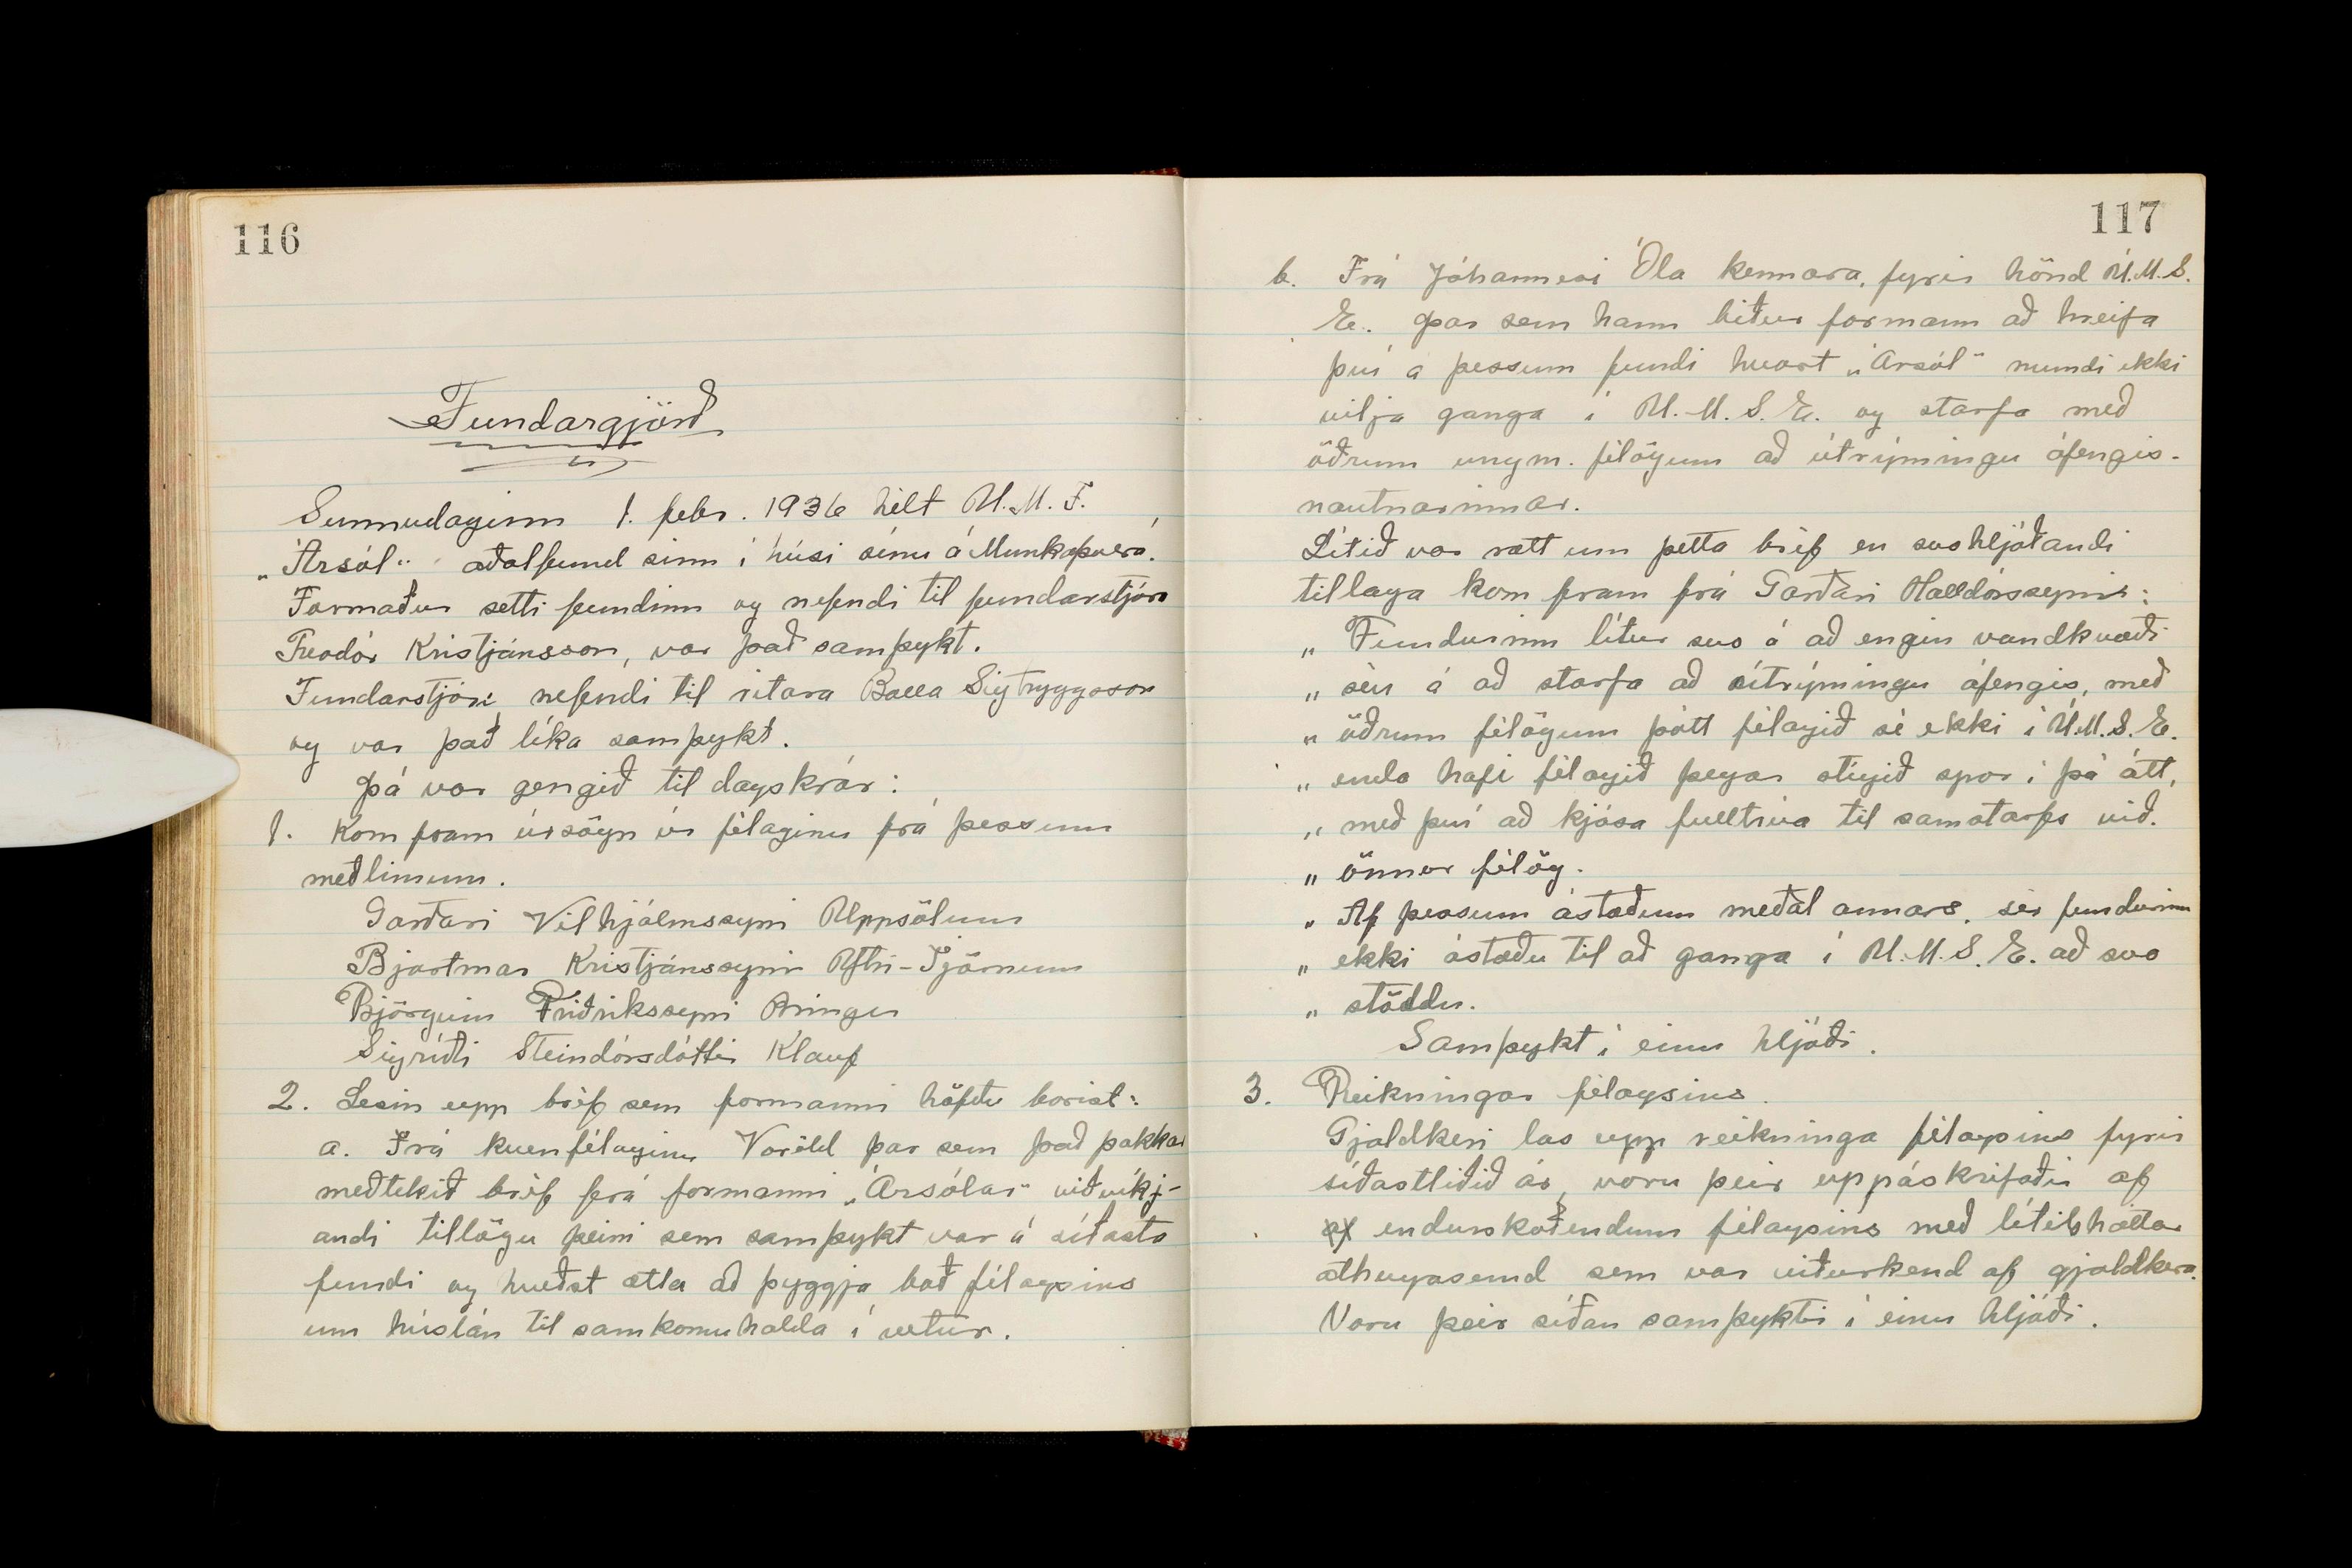 116
Fundargjörð
Sunnudaginn 1. febr. 1936 hélt U.M.F.
„Ársól" aðalfund sinn í húsi sínu á Munkaþverá.
Formaður setti fundinn og nefndi til fundarstjóra
Theodór Kristjánsson, var það samþykt.
Fundarstjóri nefndi til ritara Balla Sigtryggsson
og var það líka samþykt.
Þá var gengið til dagskrár:
1. Kom fram úrsögn úr félaginu frá þessum
meðlimum.
Garðari Vilhjálmssyni Uppsölum
Bjartmar Kristjánssyni Ytri-Tjörnum
Björgvin Friðrikssyni Bringu
Sigríði Steindórsdóttir Klauf
2. Lesin upp bréf sem formanni höfðu borist:
a. Frá kvenfélaginu Voröld þar sem það þakkar
meðtekið bréf frá formanni „Ársólar" viðvíkj-
andi tillögu þeirri sem samþykt var á síðasta
fundi og kveðst ætla að þyggja boð félagsins
um húslán til samkomuhalda í vetur.
117
b. Frá Jóhannesi Óla kennara, fyrir hönd U.M.S.
E. þar sem hann biður formann að hreifa
því á þessum fundi hvort „Ársól" mundi ekki
vilja ganga í U.M.S.E. og starfa með
öðrum ungm. félögum að útrýmingu áfengis-
nautnarinnar.
Lítið var rætt um þetta bréf en svohljóðandi
tillaga kom fram frá Garðari Halldórssyni:
„ Fundurinn lítur svo á að engin vandkvæði
„ séu á að starfa að útrýmingu áfengis, með
„ öðrum félögum þótt félagið sé ekki í U.M.S.E.
„ enda hafi félagið þegar stígið spor í þá átt,
„ með því að kjósa fulltrúa til samstarfs við.
„ önnur félög.
„ Af þessum ástæðum meðal annars, sér fundurinn
„ ekki ástæðu til að ganga í U.M.S.E. að svo
„ stöddu.
Samþykt í einu hljóði.
3. Reikningar félagsins.
Gjaldkeri las upp reikninga félagsins fyrir
síðastliðið ár, voru þeir uppáskrifaðir af
af endurskoðendum félagsins með lítilsháttar
athugasemd sem var viðurkend af gjaldkera.
Voru þeir síðan samþyktir í einu hljóði.